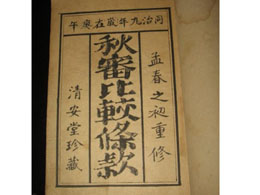 同治九年歲在庚午
孟春之初重修
秋審比較條款
清安堂珍藏